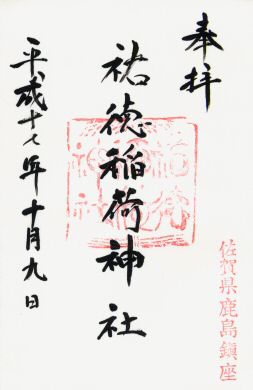 奉拝
祐徳稲荷神社
平成十七年十月九日
佐賀県鹿島鎮座